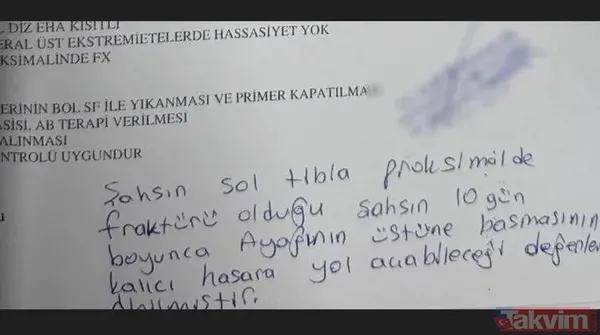 DİZ EHA KISITLI
ERAL ÜST EKSTREMİETELERDE HASSASİYET YOK
KSİMALİNDE FX
ERİNİN BOL SF İLE YIKANMASI VE PRİMER KAPATILMA
ASİSI, AB TERAPİ VERİLMESİ
ALINMASI
NTROLÜ UYGUNDUR
Şahsın sol tibia proksimalde
fraktürü olduğu şahsın 10 gün
boyunca Ayağının üstüne basmasının
kalıcı hasara yol açabileceği değerlen
dirilmiştir.
Takvim